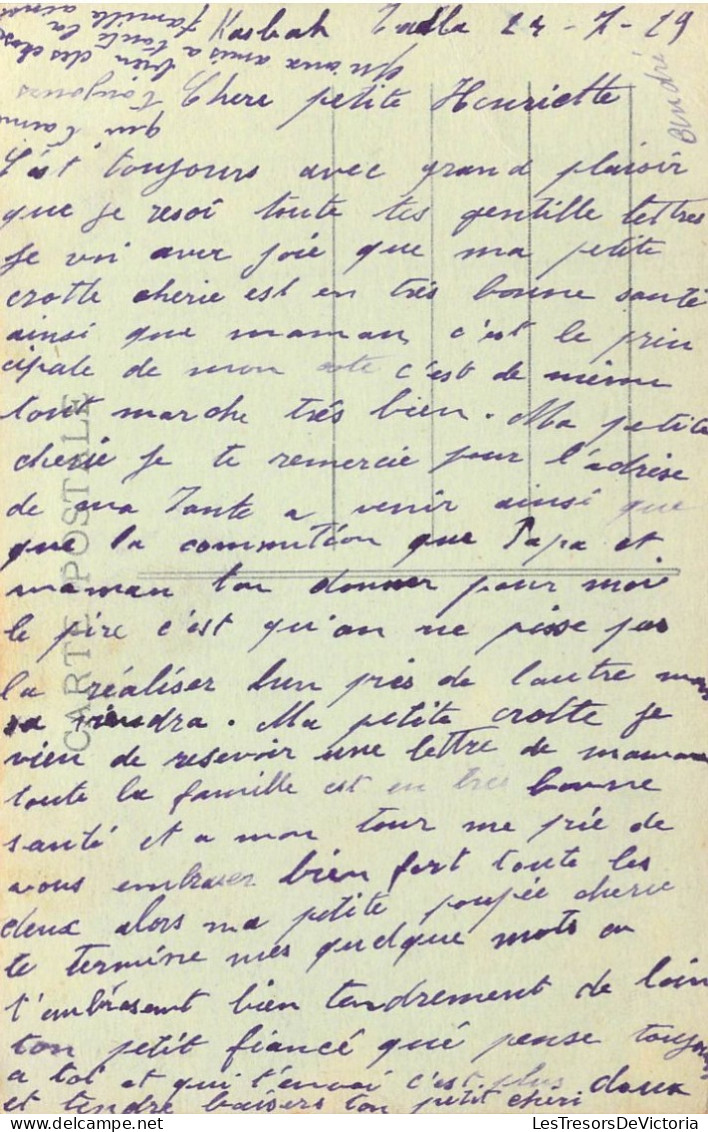 Kasbah Tadla 24-7-29
Chere petite Henriette
C'est toujours avec grand plaisir
que je resoi toute tes gentille lettres
Je voi avec joie que ma petite
crotte cherie est en très bonne santé
ainsi que maman, c'est le prin
cipale de mon cote c'est de même
tout marche très bien. Ma petite
cherie je te remercie pour l'adrèse
de ma Tante a venir ainsi que
que la commition que Papa et
maman ton donner pour moi
le pire c'est qu'on ne pisse pas
la réaliser l'un près de l'autre mais
sa viendra. Ma petite crotte je
vien de resevoir une lettre de maman
toute la famille est en très bonne
santé et a mon tour me prie de
vous embrasser bien fort toute les
deux alors ma petite poupée cherie
te termine mes quelque mots en
t'embrèsent bien tendrement de loin
ton petit fiancé qué pense toujours
a toi et qui t'envoi c'est plus doux
et tendre baisers ton petit cheri
qui t'aime toujours
bien des chose
qu'aux amis a toute la
famille ainsi
CARTE POSTALE
LesTresorsDeVictoria